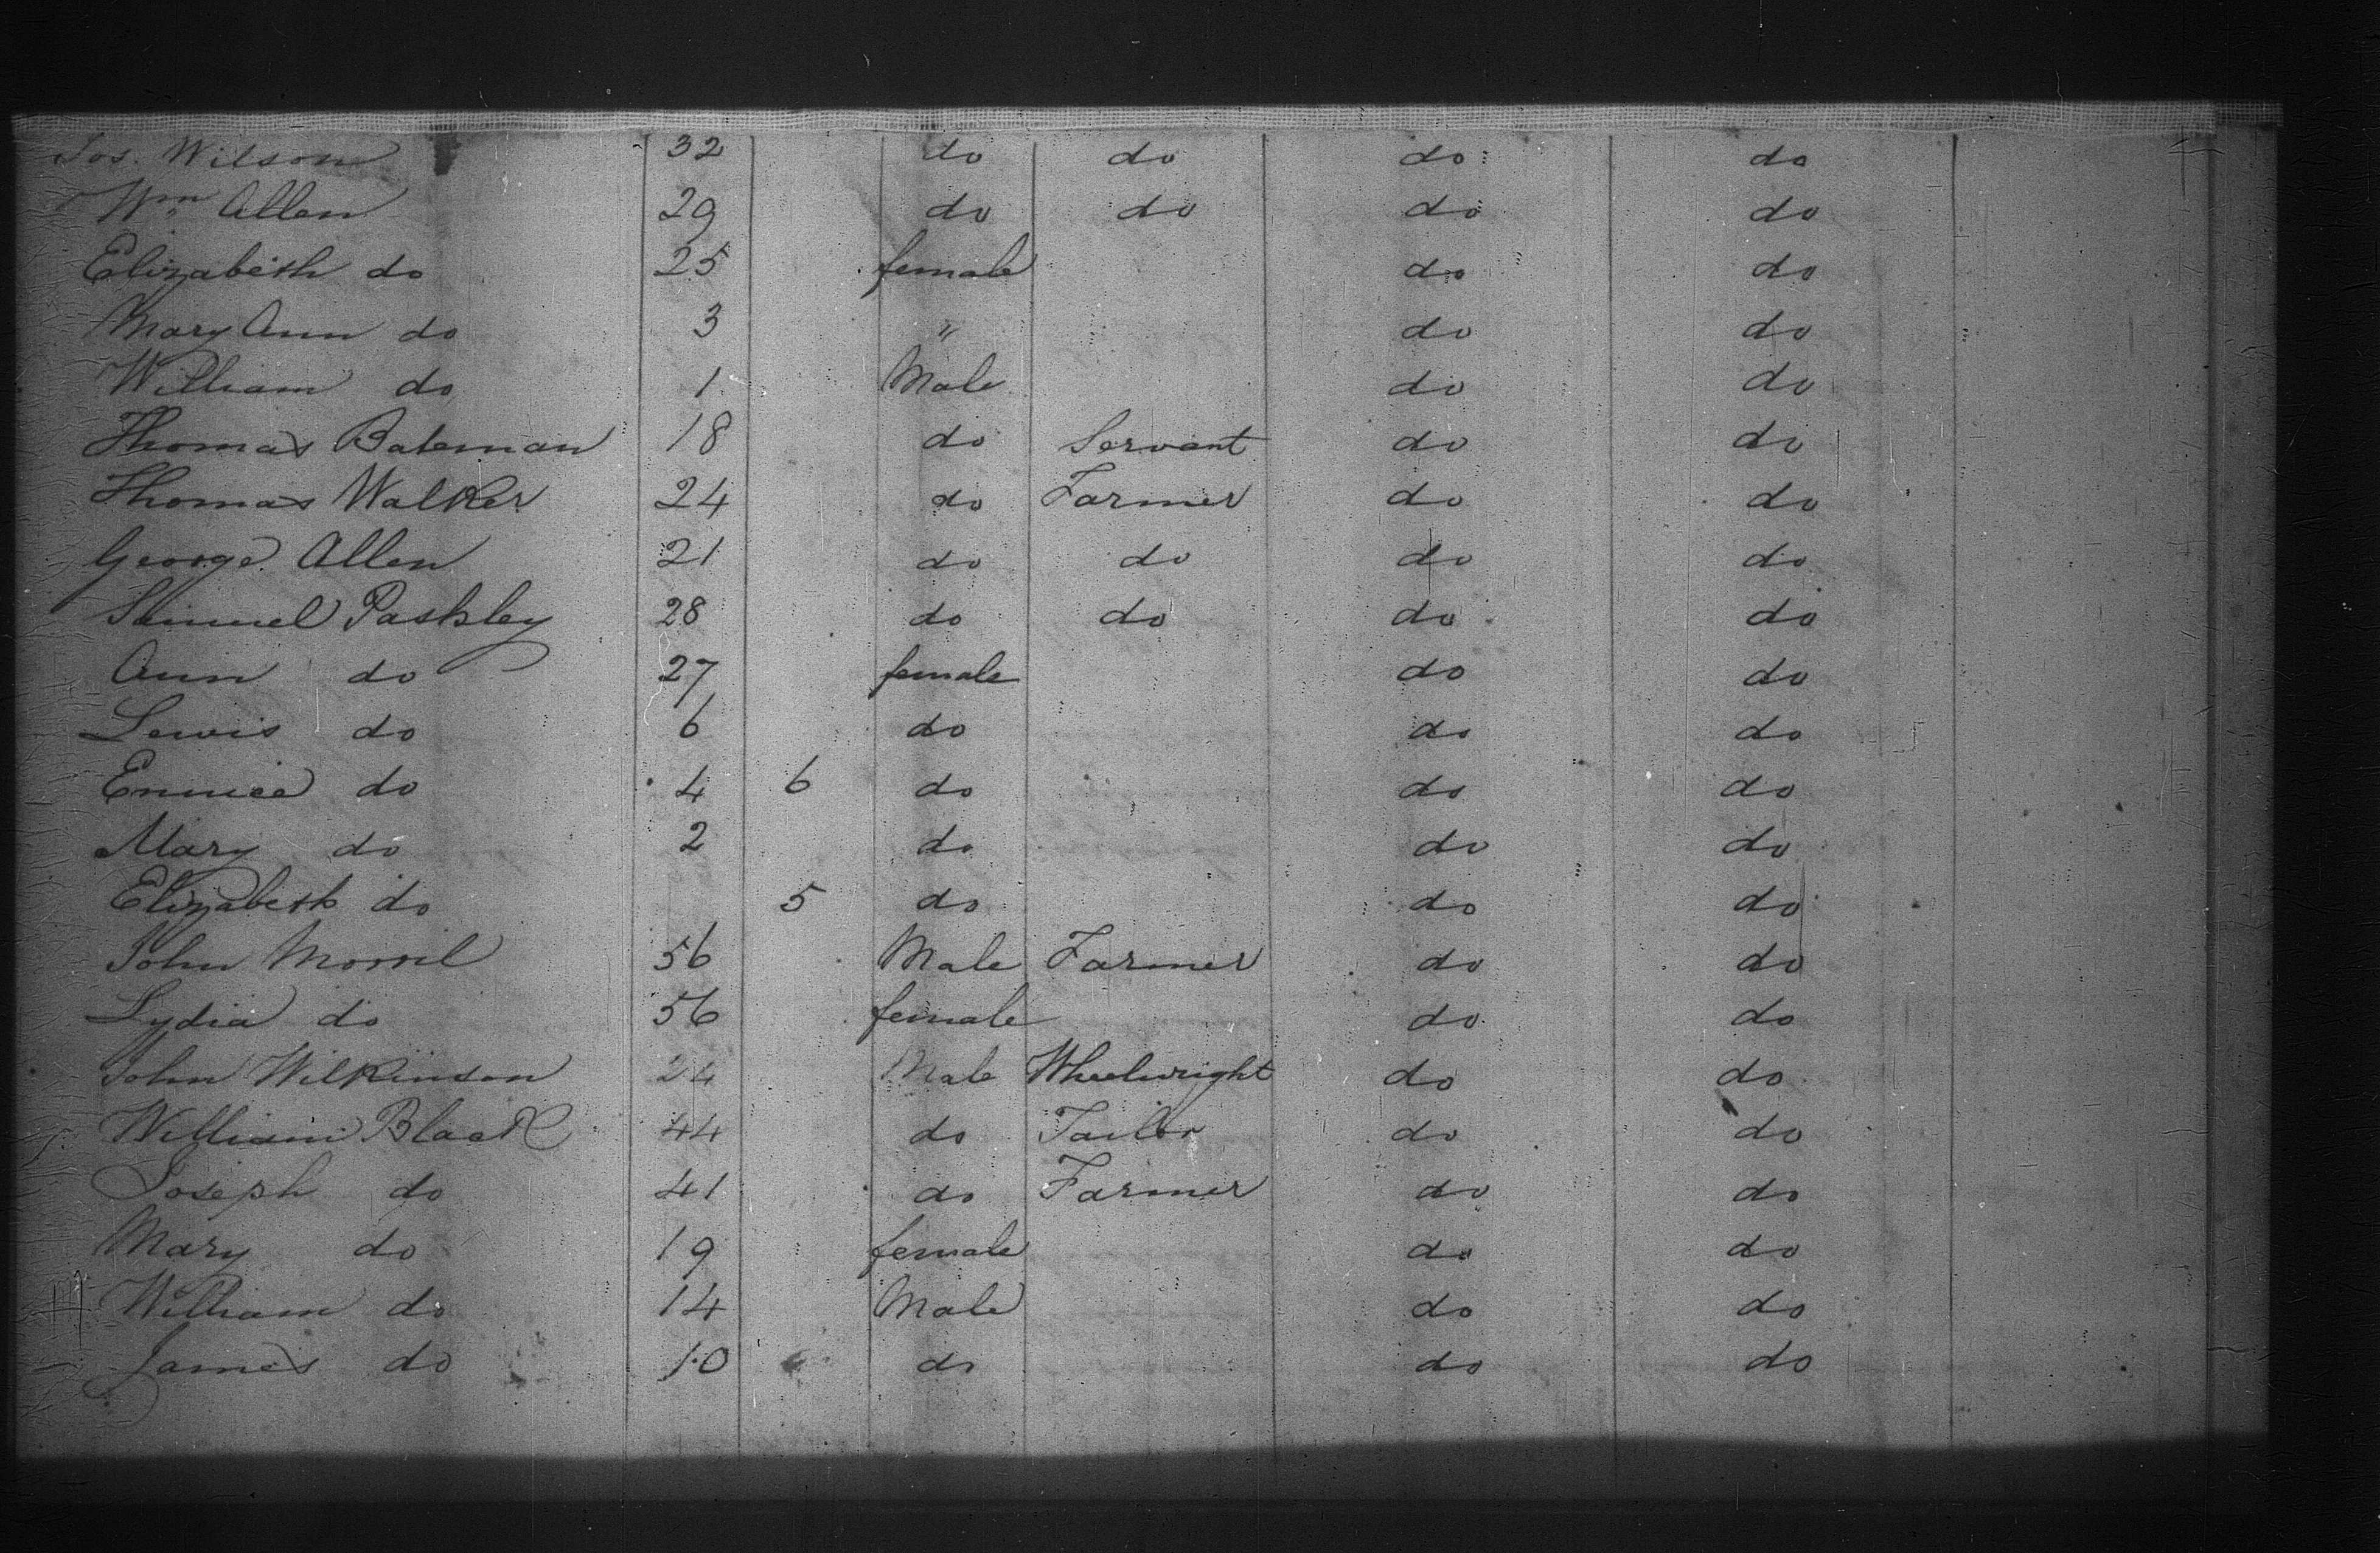 Jos. Wilson 32 do do do do
Wm Allen 29 do do do do
Elizabeth do 25 female do do
Mary Ann do 3 " do do
William do 1 Male do do
Thomas Bateman 18 do Servant do do
Thomas Walker 24 do Farmer do do
George Allen 21 do do do do
Samuel Pashley 28 do do do do
Ann do 27 female do do
Lewis do 6 do do do
do 4 6 do do do
Mary do 2 do do do
Elizabeth do 5 do do do
John Morril 56 Male Farmer do do
Lydia do 56 female do do
John Wilkinson 24 Male Wheelwright do do
William Black 44 do Tailor do do
Joseph do 41 do Farmer do do
Mary do 19 female do do
William do 14 Male do do
James do 10 do do do